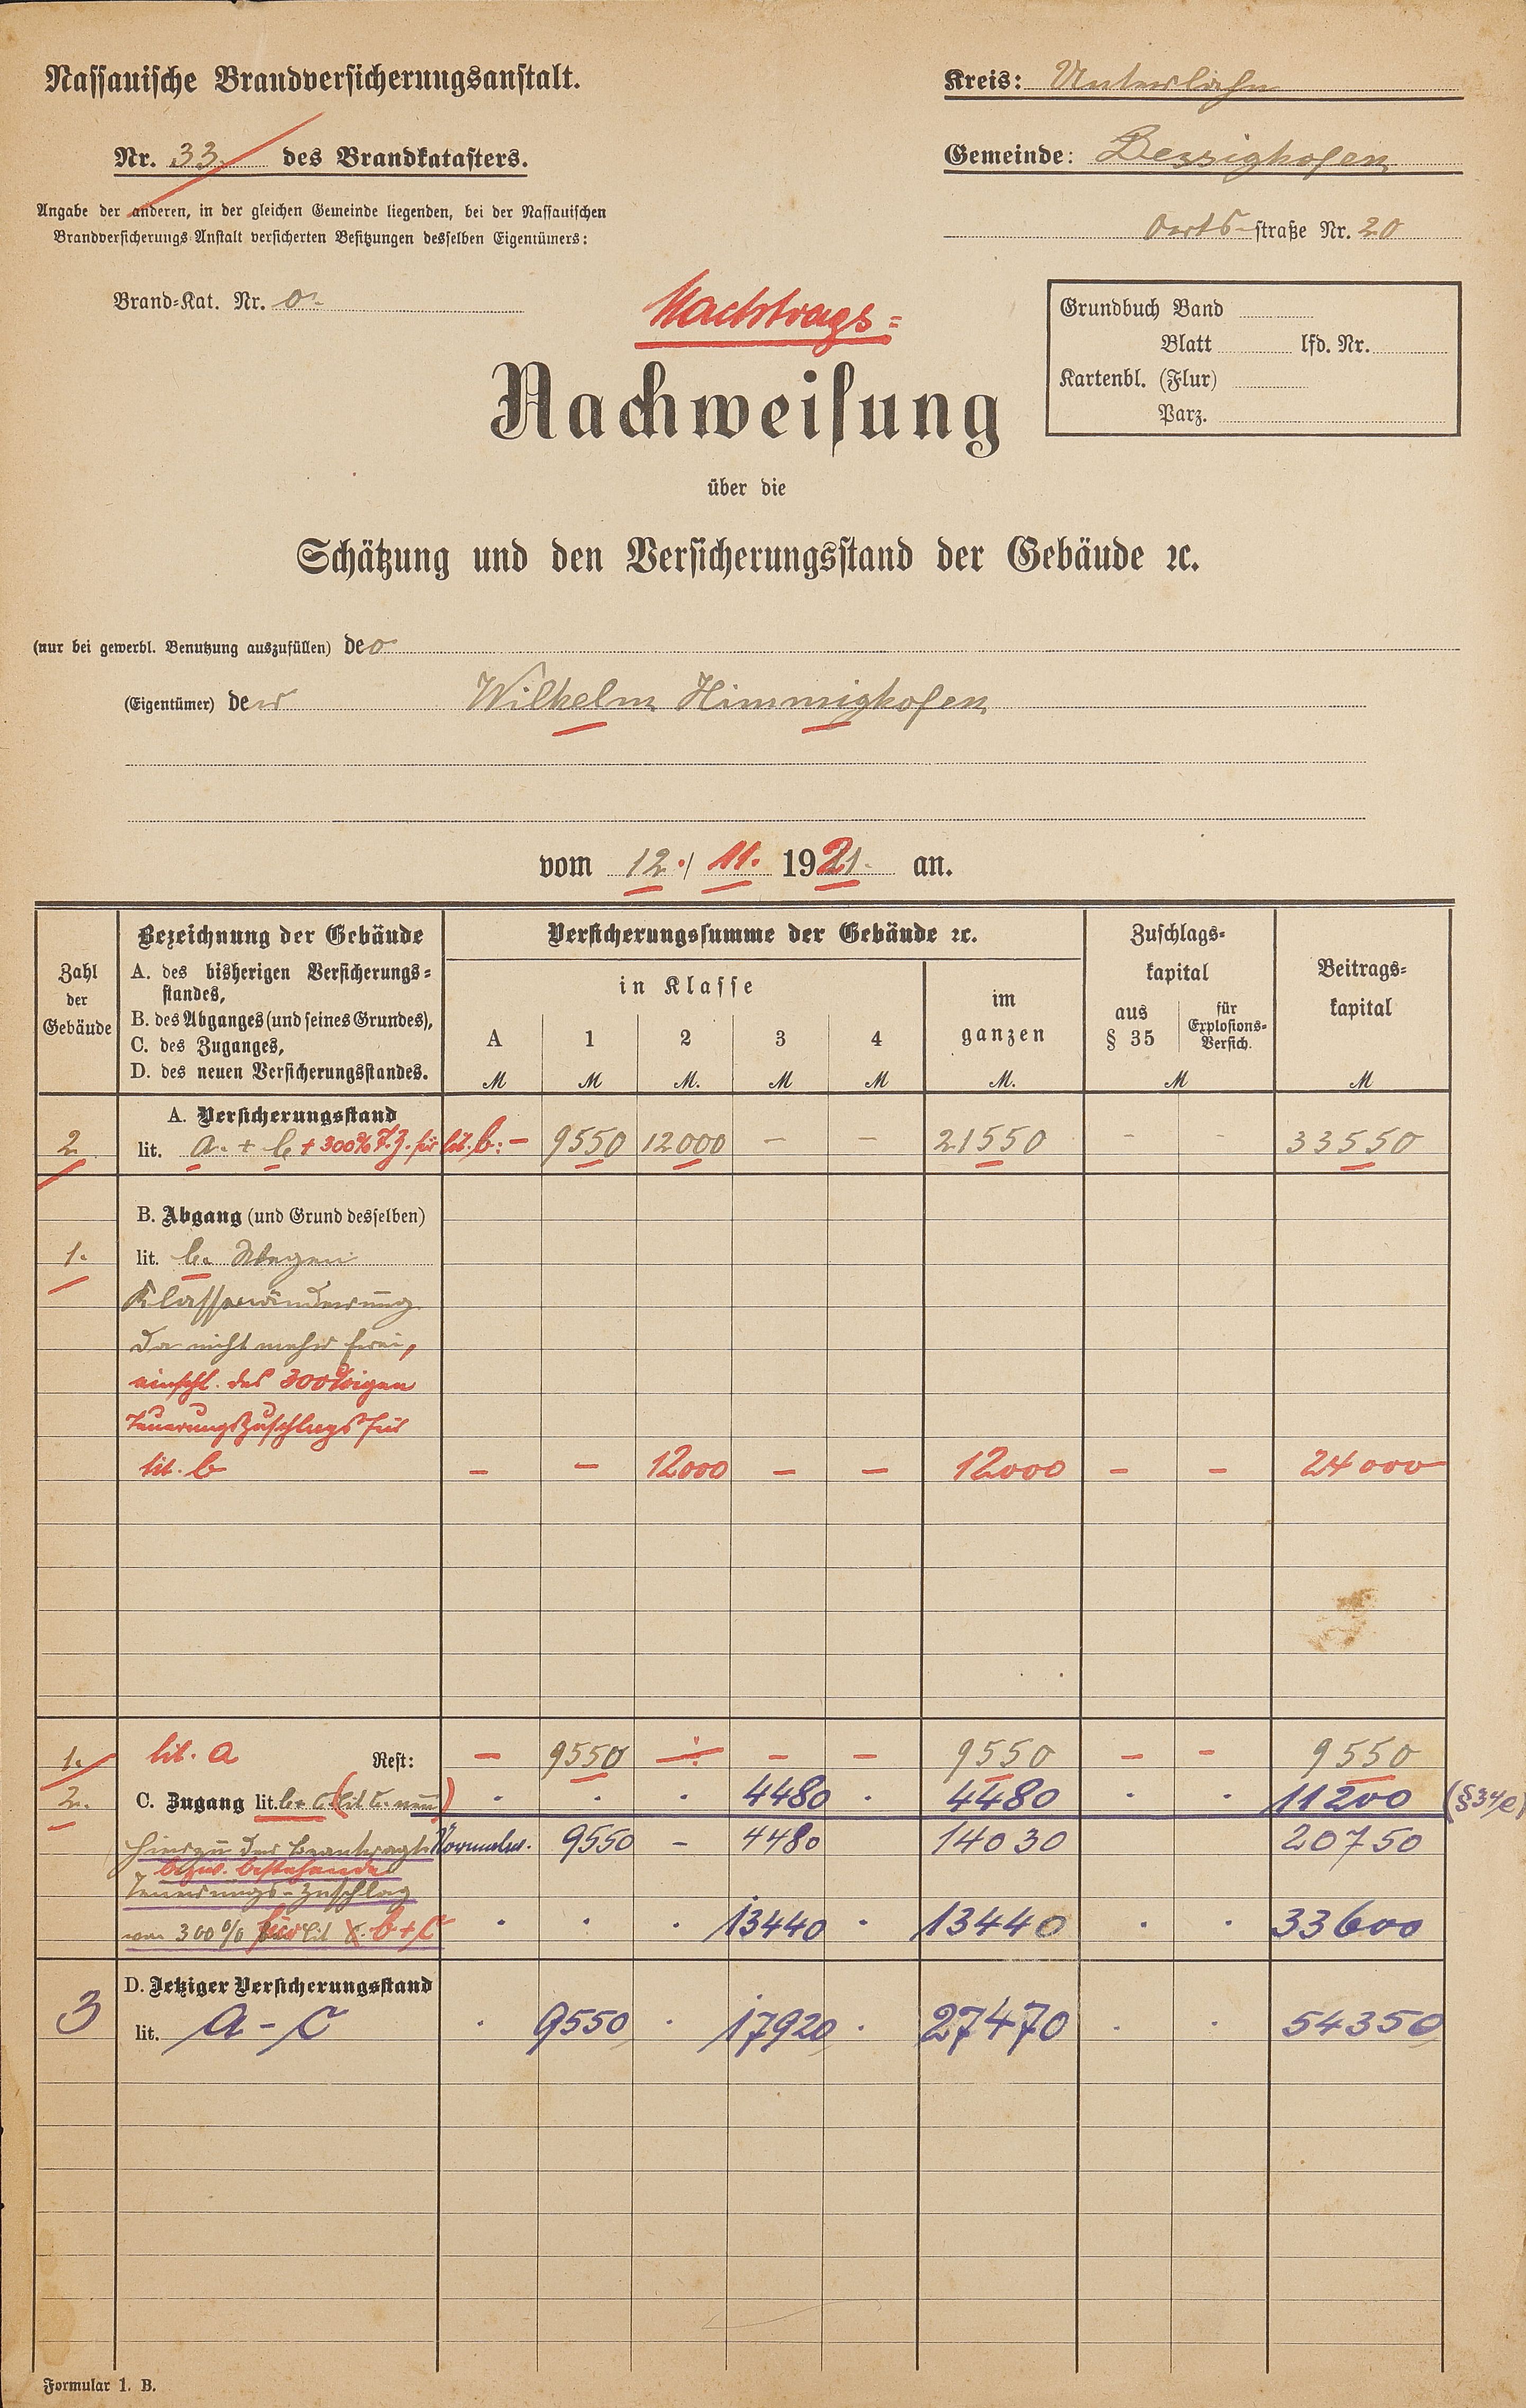 Nassauische Brandversicherungsanstalt.
Kreis: Unterlahn
Nr. 33. des Brandkatasters.
Gemeinde: Dessighofen
Angabe der anderen, in der gleichen Gemeinde liegenden, bei der Nassauischen
Brandversicherungs-Anstalt versicherten Besitzungen desselben Eigentümers:
Orts-straße Nr. 20
Brand-Kat. Nr.
Nachtrags-
Grundbuch Band
Blatt lfd. Nr.
Kartenbl. (Flur)
Parz.
Nachweisung
über die
Schätzung und den Versicherungsstand der Gebäude ꝛc.
(nur bei gewerbl. Benutzung auszufüllen) de
(Eigentümer) der Wilhelm Himmighofen
vom 12./11. 1921. an.
Zahl
der
Gebäude
Bezeichnung der Gebäude
A. des bisherigen Versicherungs-
standes,
B. des Abganges (und seines Grundes),
C. des Zuganges,
D. des neuen Versicherungsstandes.
Versicherungssumme der Gebäude ꝛc.
in Klasse
A 1 2 3 4
M M M. M M
im
ganzen
M.
Zuschlags-
kapital
aus
§ 35
für
Explosions-
Versich.
M
Beitrags-
kapital
M
A. Versicherungsstand
2 lit. a. + b. + 300% T.Z. für lit. b: - 9550 12000 - - 21550 - - 33550
B. Abgang (und Grund desselben)
1. lit. b. Wegen
Klassenänderung
da nicht mehr frei,
einschl. des 300%igen
Teuerungszuschlags für
lit. b - - 12000 - - 12000 - - 24000
1. lit. a Rest: - 9550 - - - 9550 - - 9550
2. C. Zugang lit. b + c (lit c. neu) . . . 4480 . 4480 . . 11200 (§34/e)
hierzu der beantragte Normalw. 9550 - 4480 14030 20750
bezw. bestehende
Teuerungs-Zuschlag
von 300% für lit b + c . . . 13440 . 13440 . . 33600
D. Jetziger Versicherungsstand
3 lit. a - c . 9550 . 17920 . 27470 . . 54350
Formular 1. B.